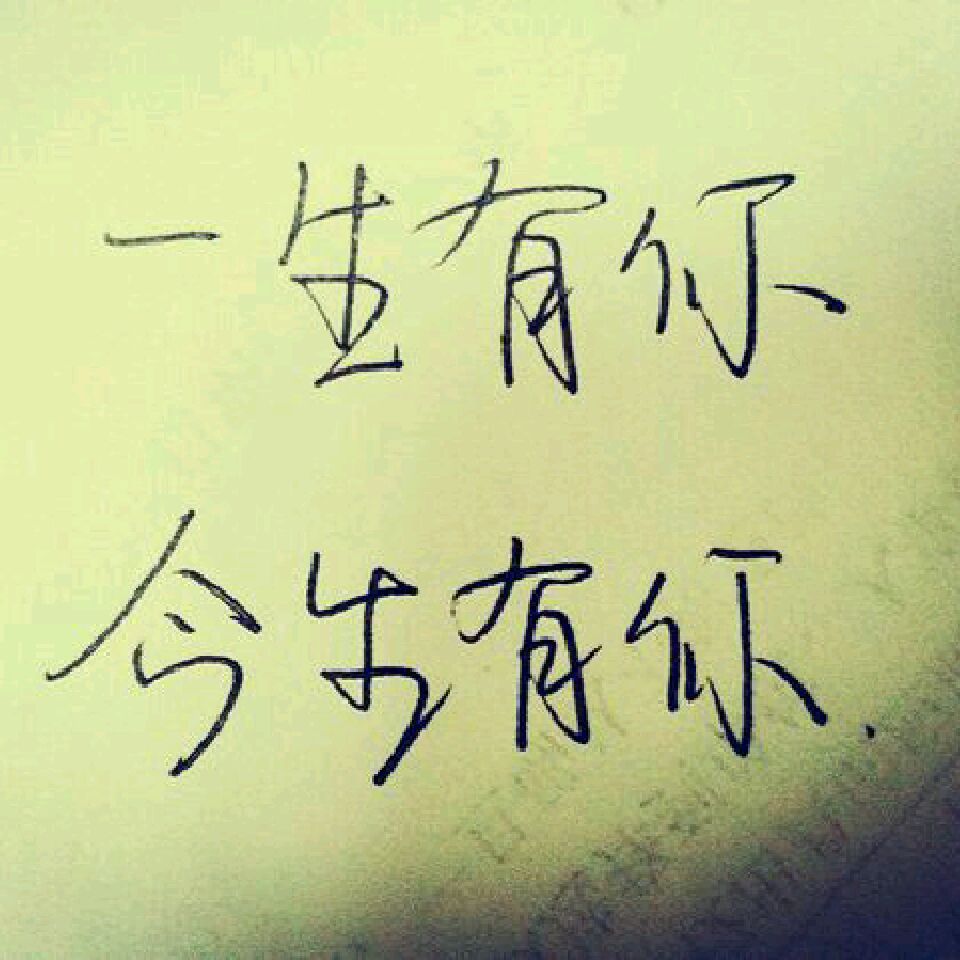 一生有你
今生有你.